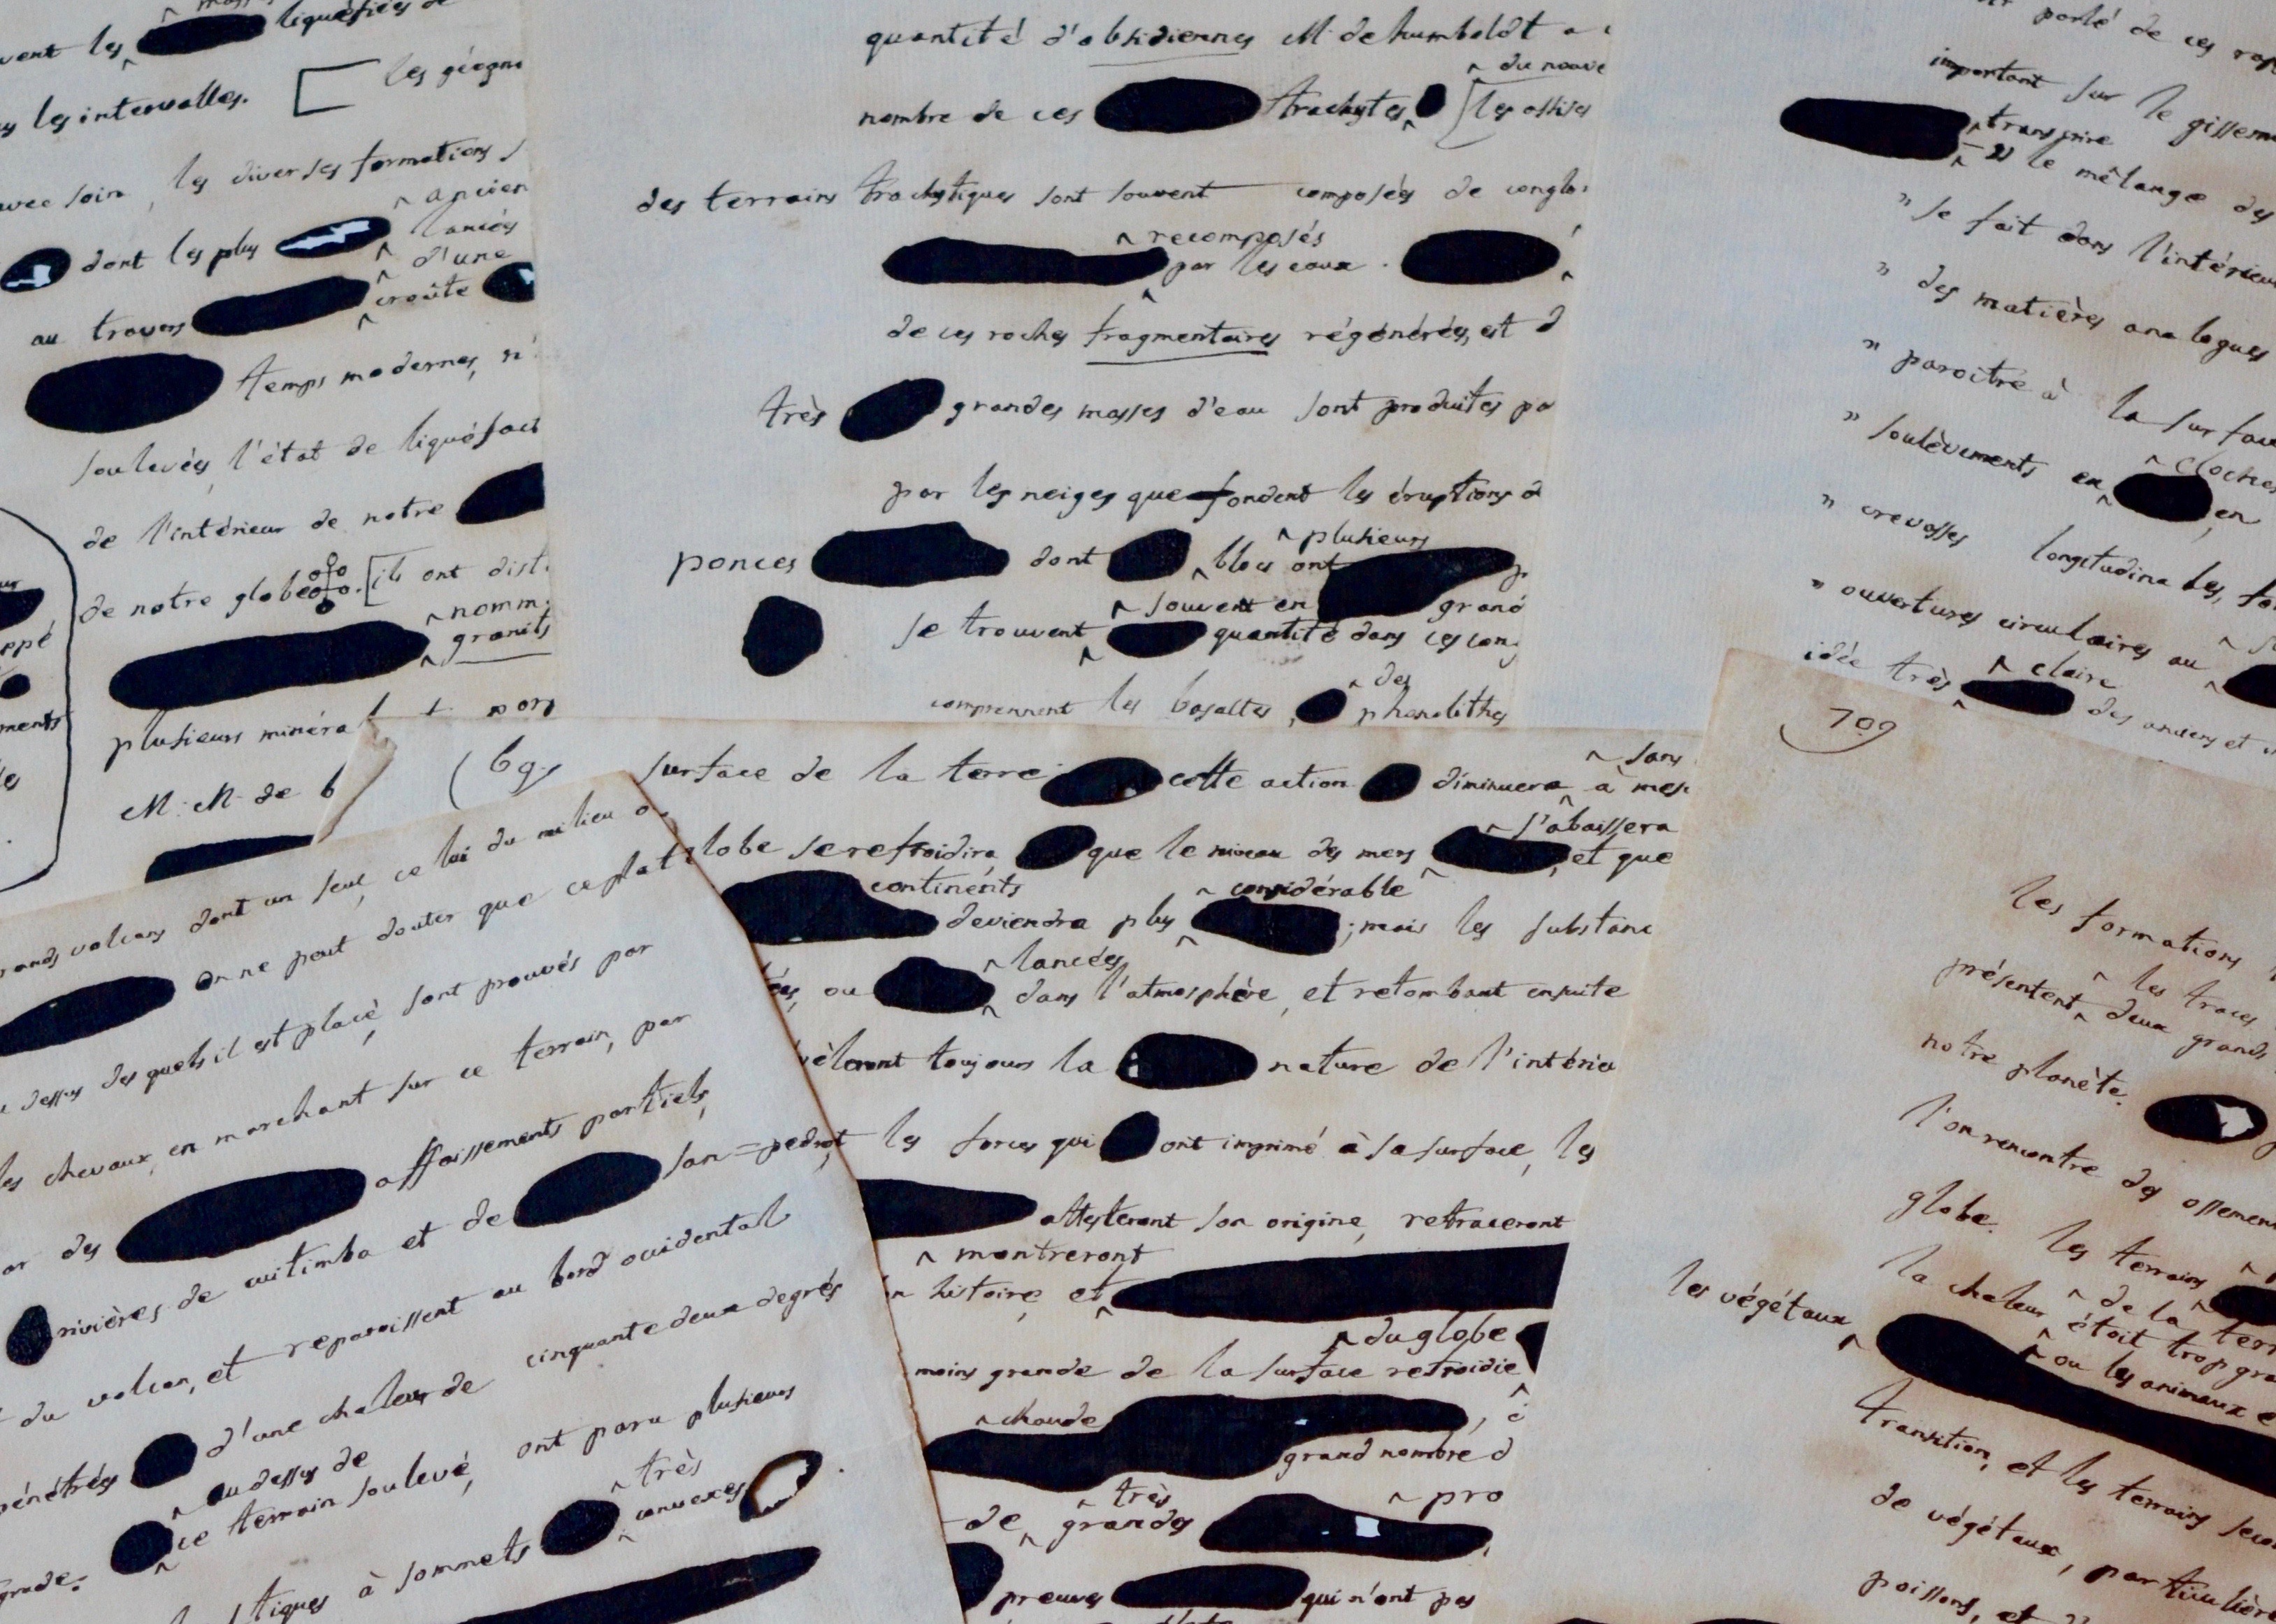 vent les liquéfiées de
les intervalles. les géogn
avec soin, les diverses formations
ancien
dont les plus lancés
d'une
au travers croûte
temps modernes, n'
soulevés, l'état de liquéfact
de l'intérieur de notre
de notre globe. ils ont dist
nomm
granits
plusieurs minéra
M. M. de b
quantité d'obsidiennes M. de humboldt a
du nouve
nombre de ces trachytes, les assises
des terrains trachytiques sont souvent composés de conglo
recomposés
par les eaux.
de ces roches fragmentaires régénérées, est d
très grandes masses d'eau sont produites pa
par les neiges que fondent les éruptions d
plusieurs
ponces dont blocs ont
souvent en grand
se trouvent quantité dans ces cong
des
comprennent les basaltes, phonolithes
parlé de ces rap
important sur le gissem
transpire
" le mélange des
" se fait dans l'intérieur
" des matières analogues
" paroitre à la surface
cloches
" soulèvements en en
" crevasses longitudinales,
" ouvertures circulaires au
claire
idée très des anciens et
(69)
surface de la terre cette action diminuera à mes
sans
s'abaissera
globe se refroidira que le niveau des mers, et que
continents considérable
deviendra plus ; mais les substanc
lancées
ou dans l'atmosphère, et retombant ensuite
vèleront toujours la nature de l'intérieu
les forces qui ont imprimé à sa surface, les
attesteront son origine, retraceront
montreront
histoire, et
du globe
moins grande de la surface refroidie
chaude
grand nombre d
très pro
de grandes
preuves qui n'ont pas
grands volcans dont un seul, celui du milieu a
on ne peut douter que ce plat
dessus des quels il est placé, sont prouvés par
les chevaux, en marchant sur ce terrain, par
par des affaissements partiels,
rivières de cuitimba et de san=pedro,
du volcan, et reparoissent au bord occidental
pénétrés d'une chaleur de cinquante deux degrés
au dessus de
grade. ce terrain soulevé, ont paru plusieurs
très
tiques à sommets convexes
709
les formations
les traces
présentent deux grands
notre planète.
l'on rencontre des ossemen
globe. les terrains
de la terr
la chaleur étoit trop gra
les végétaux ou les animaux
transition, et les terrains seco
de végétaux, particulière
poissons, et